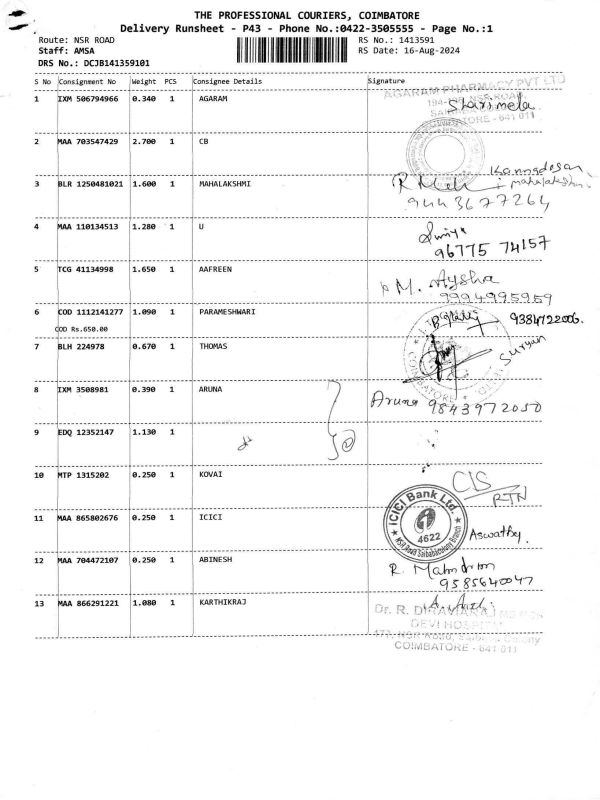 THE PROFESSIONAL COURIERS, COIMBATORE
Delivery Runsheet - P43 - Phone No.:0422-3505555 - Page No.:1
Route: NSR ROAD
Staff: AMSA
DRS No.: DCJB141359101
RS No.: 1413591
RS Date: 16-Aug-2024
S No Consignment No Weight PCS Consignee Details Signature
1 IXM 506794966 0.340 1 AGARAM
AGARAM PHARMACY PVT LTD
NSR ROAD,
COIMBATORE - 641 011
2 MAA 703547429 2.700 1 CB
3 BLR 1250481021 1.600 1 MAHALAKSHMI
9443677264
4 MAA 110134513 1.280 1 U
96775 74157
5 TCG 41134998 1.650 1 AAFREEN
M. Aysha
9994995959
6 COD 1112141277 1.090 1 PARAMESHWARI
COD Rs.650.00
9384722006.
7 BLH 224978 0.670 1 THOMAS
Suryan
COIMBATORE
8 IXM 3508981 0.390 1 ARUNA
Aruna 9843972050
9 EDQ 12352147 1.130 1
10 MTP 1315202 0.250 1 KOVAI
CIS
RTN
11 MAA 865802676 0.250 1 ICICI
ICICI Bank Ltd.
4622
NSR Road Saibabacolony Branch
Aswathy
12 MAA 704472107 0.250 1 ABINESH
9585640047
13 MAA 866291221 1.080 1 KARTHIKRAJ
Dr. R. DIRAVIARAJ
DEVI HOSPITAL
COIMBATORE - 641 011